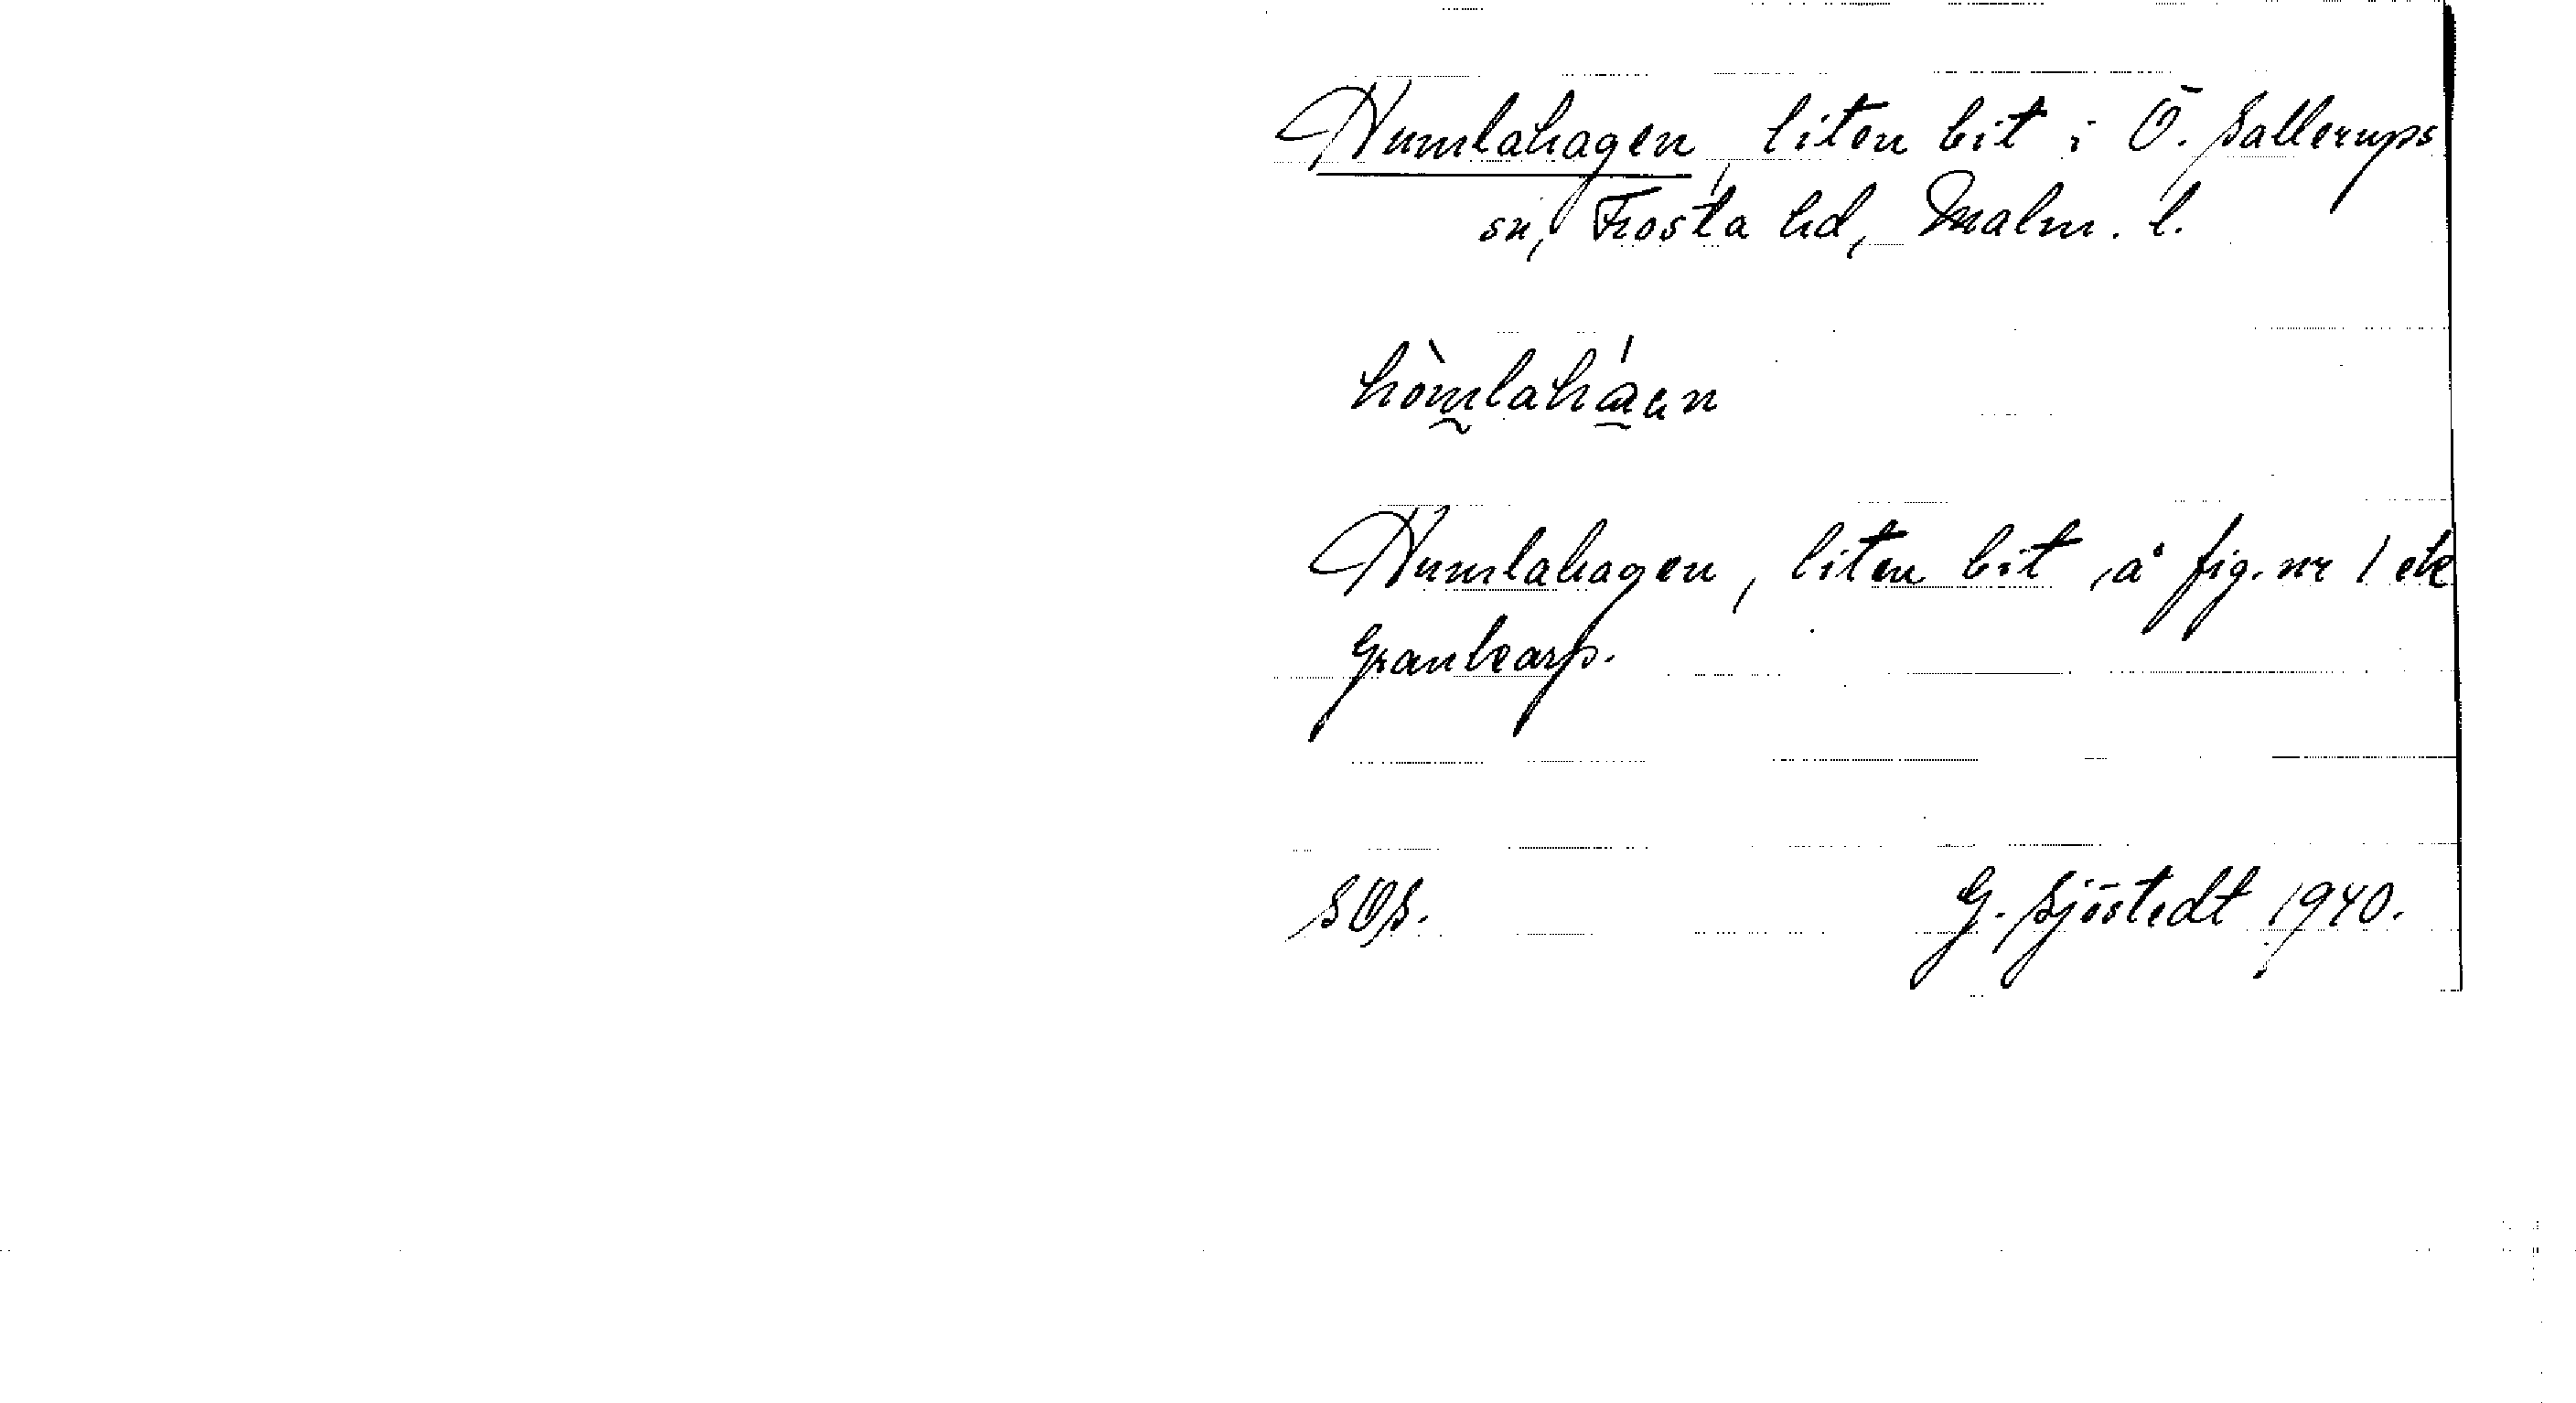 Humlahagen, liten bit i Ö. Sallerups
sn, Frosta hd, Malm. l.
hòmlaháan
Humlahagen, liten bit å fig. nr 1 ek
Grankarp.
SOS.
G. Sjöstedt 1940.